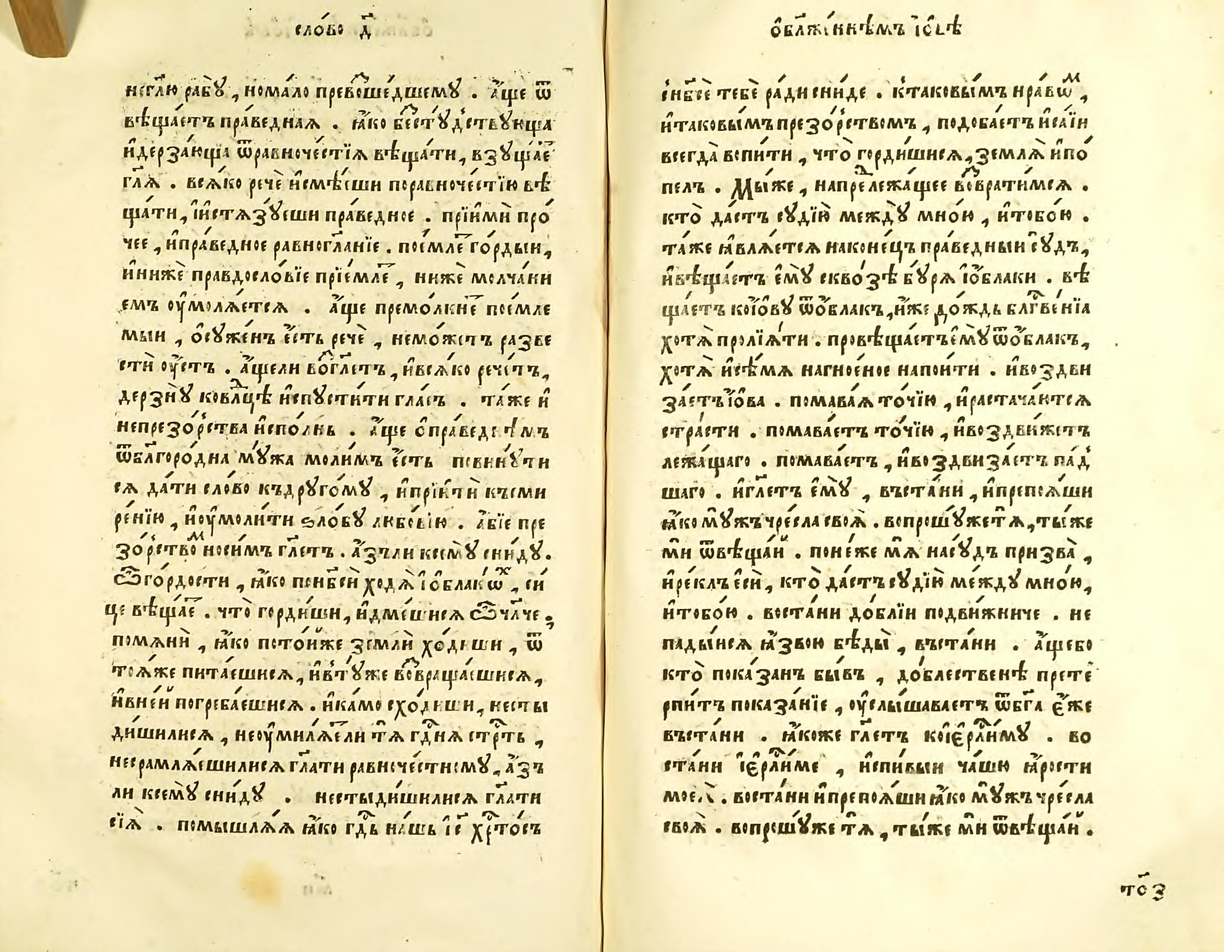 сло́во д҃
неглю рабꙋ̀, нома́ло превоше́дшемꙋ . а́ще ѿ
вѣща́етъ пра́веднаꙗ . ꙗ́ко бестꙋ́дствꙋюща
и҆дерза́юща ѿравноче́стїѧ вѣща́ти, взꙋща́е
глѧ . всѧ́ко речѐ и҆смѣ́еши поравноче́стїю вѣ
ща́ти, и҆истѧзꙋ́еши пра́ведное . прїимѝ про́
чее , и҆пра́ведное равногла́нїе . пое́млѐ го́рдыи,
и҆нижѐ правдосло́вїе прїе́млѐ , нижѐ молча́ни
емъ оу҆молѧ́етсѧ . а́ще премо́лкнѐ пое́мле
мыи , ѡ҆сꙋже́нъ е҆́сть речѐ , немо́жетъ разве
стѝ оу҆́стъ . а́щели во́глетъ, и҆всѧ́ко рече́тъ,
дерзнꙋ̀ ковлцѣ и҆спꙋсти́ти гла́съ . та́же и҆
непрезо́рства и҆спо́лнь . а́ще
ѿблгоро́дна мꙋ́жа моли́мъ е҆́сть повинꙋ́ти
сѧ да́ти сло́во къдрꙋго́мꙋ , и҆прїитѝ късми
ре́нїю , и҆оу҆моли́ти ѕло́бꙋ любо́вїю . а́бїе пре
зо́рство носи́мъ глетъ . а́зъли ксемꙋ̀ сни́дꙋ.
Ѽго́рдости , ꙗ́ко понбсѝ ходѧ̀ і҆ѡ́блакѡх, си́
це вѣща́е . что̀ горди́ши, и҆дме́шисѧ Ѽчлче,
помѧнѝ , ꙗ́ко пото́йже землѝ хо́диши , ѿ
тоѧ́же пита́ешисѧ, и҆втꙋ́же вовраща́ешисѧ,
и҆вне́й погреба́ешисѧ . и҆ка́мо схо́диши, несты
ди́шилисѧ , неоу҆милѧ́ели тѧ̀ гднѧ стрть ,
несрамлѧ́ешилисѧ глати равноче́стномꙋ, а́зъ
ли ксемꙋ̀ сни́дꙋ . нестыди́шилисѧ глати
сїѧ̀ . помышлѧ́ѧ ꙗ́ко гдь на́шъ і҆с хрто́съ
ѡ҆блаже́ннѣмъ і҆о́вѣ
снбсѐ тебѐ ра́ди сни́де . ктаковы́мъ нра́вѡм ,
и҆таковы́мъ презо́рствомъ , подоба́етъ и҆са́їи
всегда̀ вопи́ти , что̀ горди́шисѧ, землѧ̀ и҆по́
пелъ . Мы́же , напре́лежащее вовратимсѧ .
кто̀ да́стъ сꙋдїю̀ междꙋ̀ мно́ю , и҆тобо́ю .
та́же ꙗ҆влѧ́етсѧ наконе́цъ пра́ведныи сꙋ́дъ,
и҆вѣща́етъ е҆мꙋ̀ сквозѣ̀ бꙋ́рѧ і҆ѡ́блаки . вѣ
ща́етъ кої҆́овꙋ ѿѡ́блакъ, и҆́же до́ждь блгве́нїа
хотѧ̀ пролїѧ́ти . провѣща́етъе҆мꙋ̀ ѿѡ́блакъ,
хотѧ̀ и҆сѣ́мѧ нагно́еное напои́ти . и҆воздви
за́етъ і҆́ова . помава́ѧ то́чїю , и҆растача́ютсѧ
стра́сти . помава́етъ то́чїю , и҆воздви́жетъ
лежа́щаго . помава́етъ , и҆воздвиза́етъ па́д
шаго . и҆глетъ е҆мꙋ̀ , въста́ни , и҆препоѧ́ши
ꙗ́ко мꙋ́жъ чре́сла своѧ̀ . вопрошꙋ́жетѧ, ты́же
мѝ ѿвѣща́й . поне́же мѧ̀ насꙋ́дъ призва̀ ,
и҆ре́клъ е҆сѝ, кто̀ да́стъ сꙋдїю̀ междꙋ̀ мно́ю,
и҆тобо́ю . воста́ни до́блїи подви́жниче . не
па́дыисѧ ꙗ́звою бѣды̀ , въста́ни . а́щебо
кто̀ пока́занъ бы́въ , до́блественѣ претѐ
рпитъ показа́нїе , оу҆слышава́етъ ѿбга е҆́же
въста́ни . ꙗ́коже глетъ коі҆ерлимꙋ . во
ста́ни і҆ерлиме , и҆спи́выи ча́шю ꙗ҆́рости
моеѧ̀ . воста́ни и҆препоѧ́ши ꙗ́ко мꙋ́жъ чре́сла
своѧ̀ . вопрошꙋ́же тѧ̀ , ты́же мѝ ѿвѣща́й .
то́ з